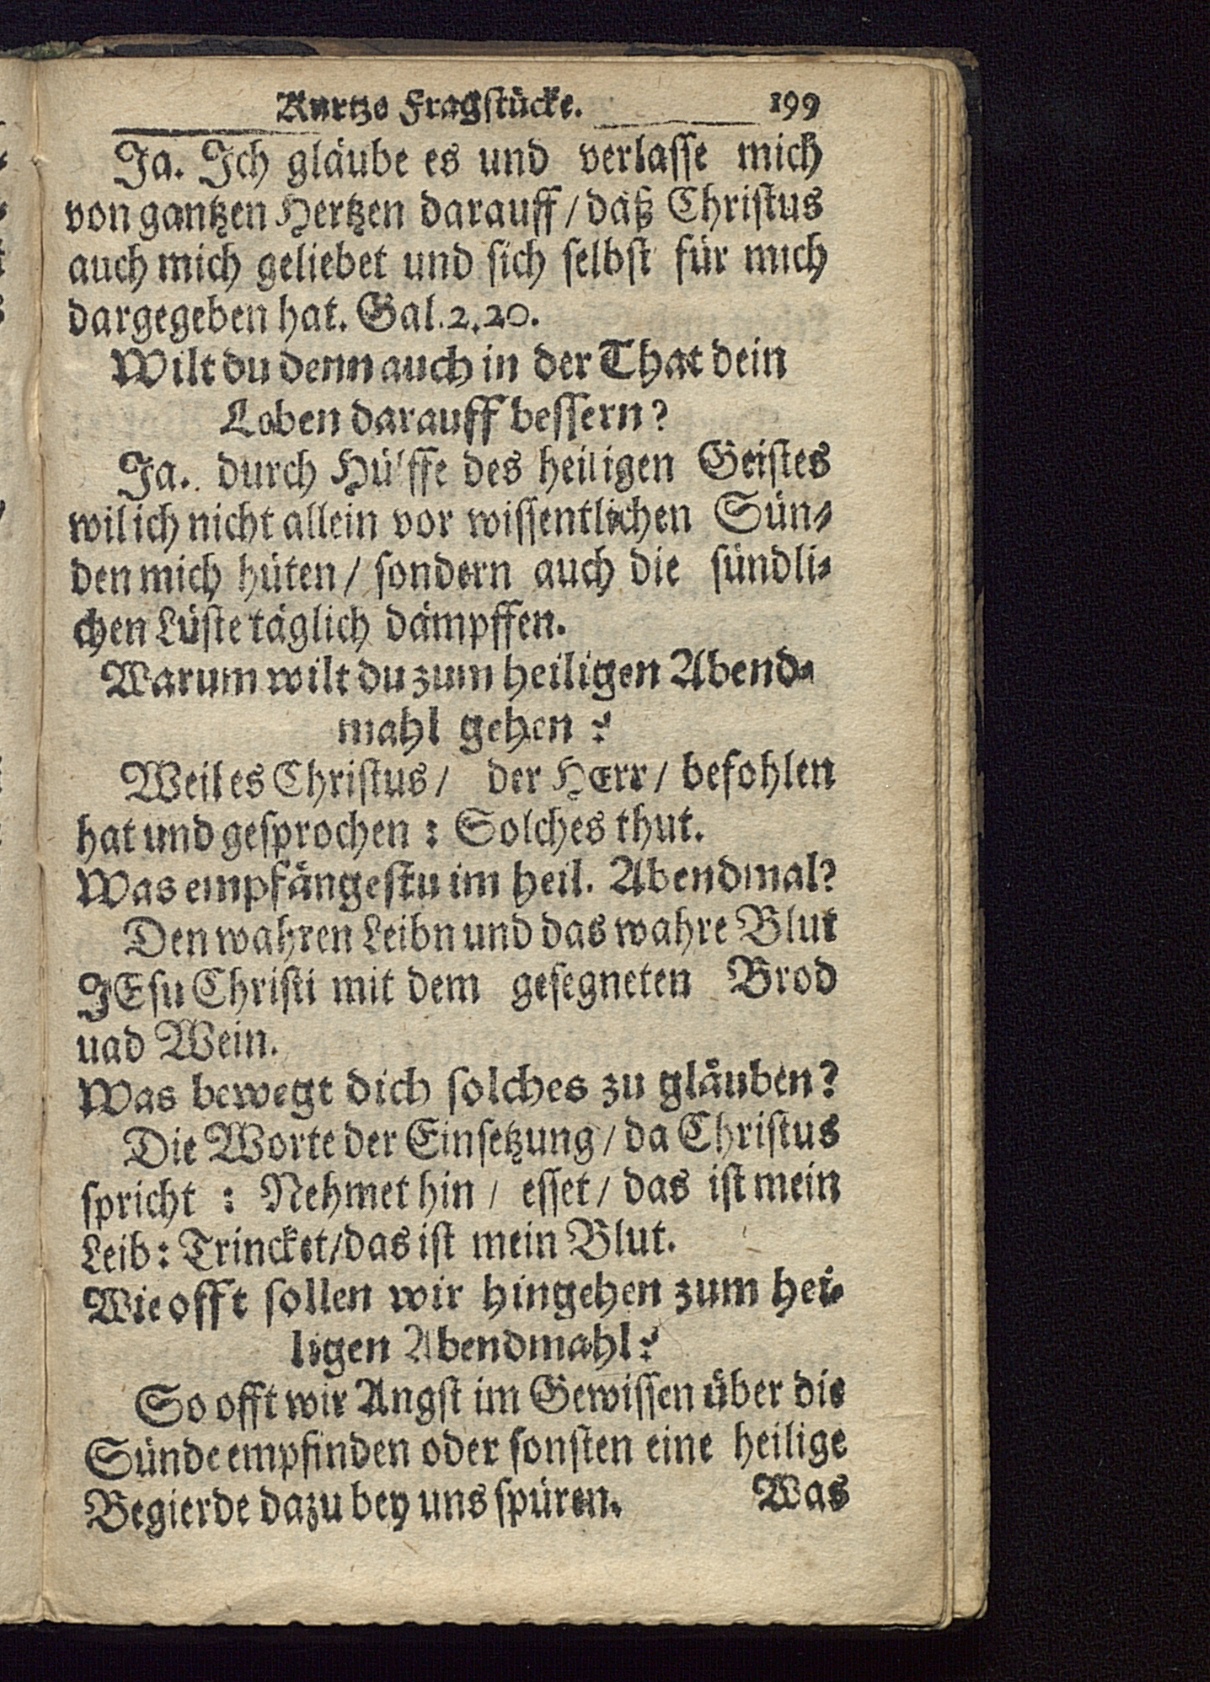 Kurtze Fragstücke. 199
Ja. Ich gläube es und verlasse mich
von gantzen Hertzen darauff / daß Christus
auch mich geliebet und sich selbst für mich
dargegeben hat. Gal. 2. 20.
Wilt du denn auch in der That dein
Leben darauff bessern?
Ja. durch Hülffe des heiligen Geistes
wil ich nicht allein vor wissentlichen Sün-
den mich hüten / sondern auch die sündli-
chen Lüste täglich dämpffen.
Warum wilt du zum heiligen Abend-
mahl gehen?
Weil es Christus / der HErr / befohlen
hat und gesprochen: Solches thut.
Was empfängestu im heil. Abendmal?
Den wahren Leibn und das wahre Blut
JEsu Christi mit dem gesegneten Brod
uad Wein.
Was bewegt dich solches zu gläuben?
Die Worte der Einsetzung / da Christus
spricht: Nehmet hin / esset / das ist mein
Leib: Trincket / das ist mein Blut.
Wie offt sollen wir hingehen zum hei-
ligen Abendmahl?
So offt wir Angst im Gewissen über die
Sünde empfinden oder sonsten eine heilige
Begierde dazu bey uns spüren. Was